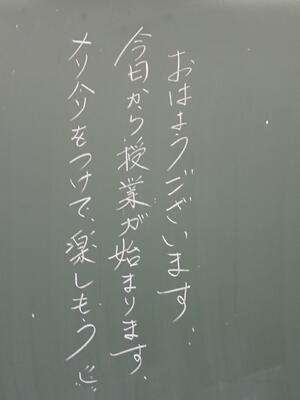 おはようございます.
今日から授業が始まります.
メリハリをつけて、楽しもう